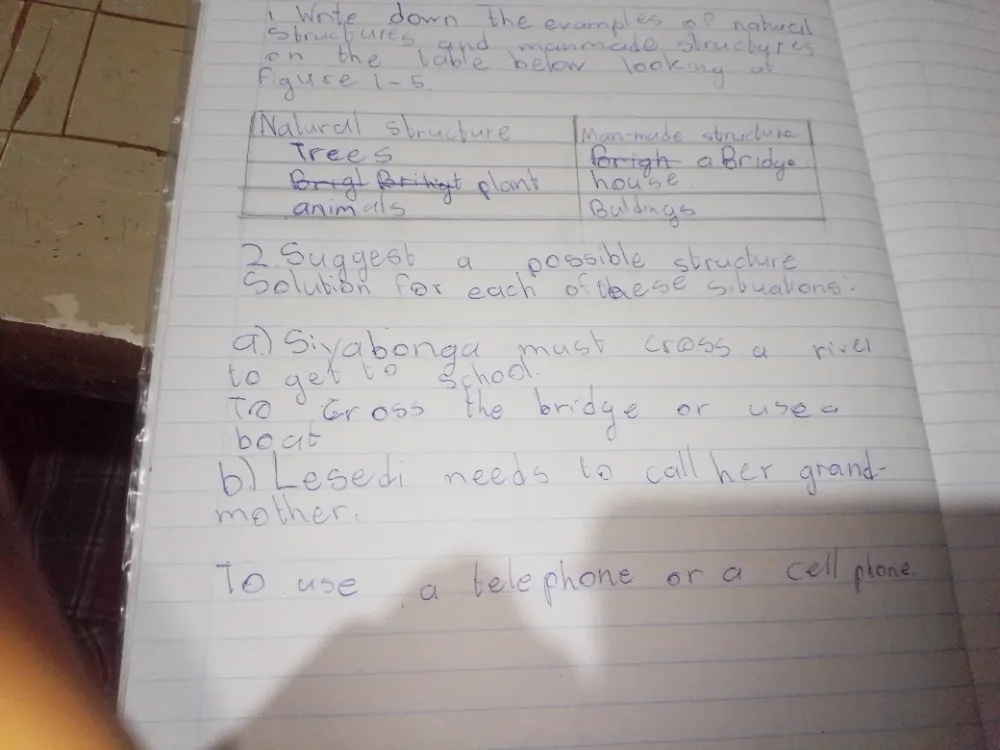 1 Write down the examples of natural
structures and manmade structures
on the table below looking at
figure 1-5.
Natural structure Man-made structure
Trees Brigh a Bridge
Brigl Brihigt plant house.
animals Buldings
2. Suggest a possible structure
Solution for each of these situations:
a) Siyabonga must cross a river
to get to school.
To Cross the bridge or use a
boat
b) Lesedi needs to call her grand-
mother.
To use a telephone or a cell phone.